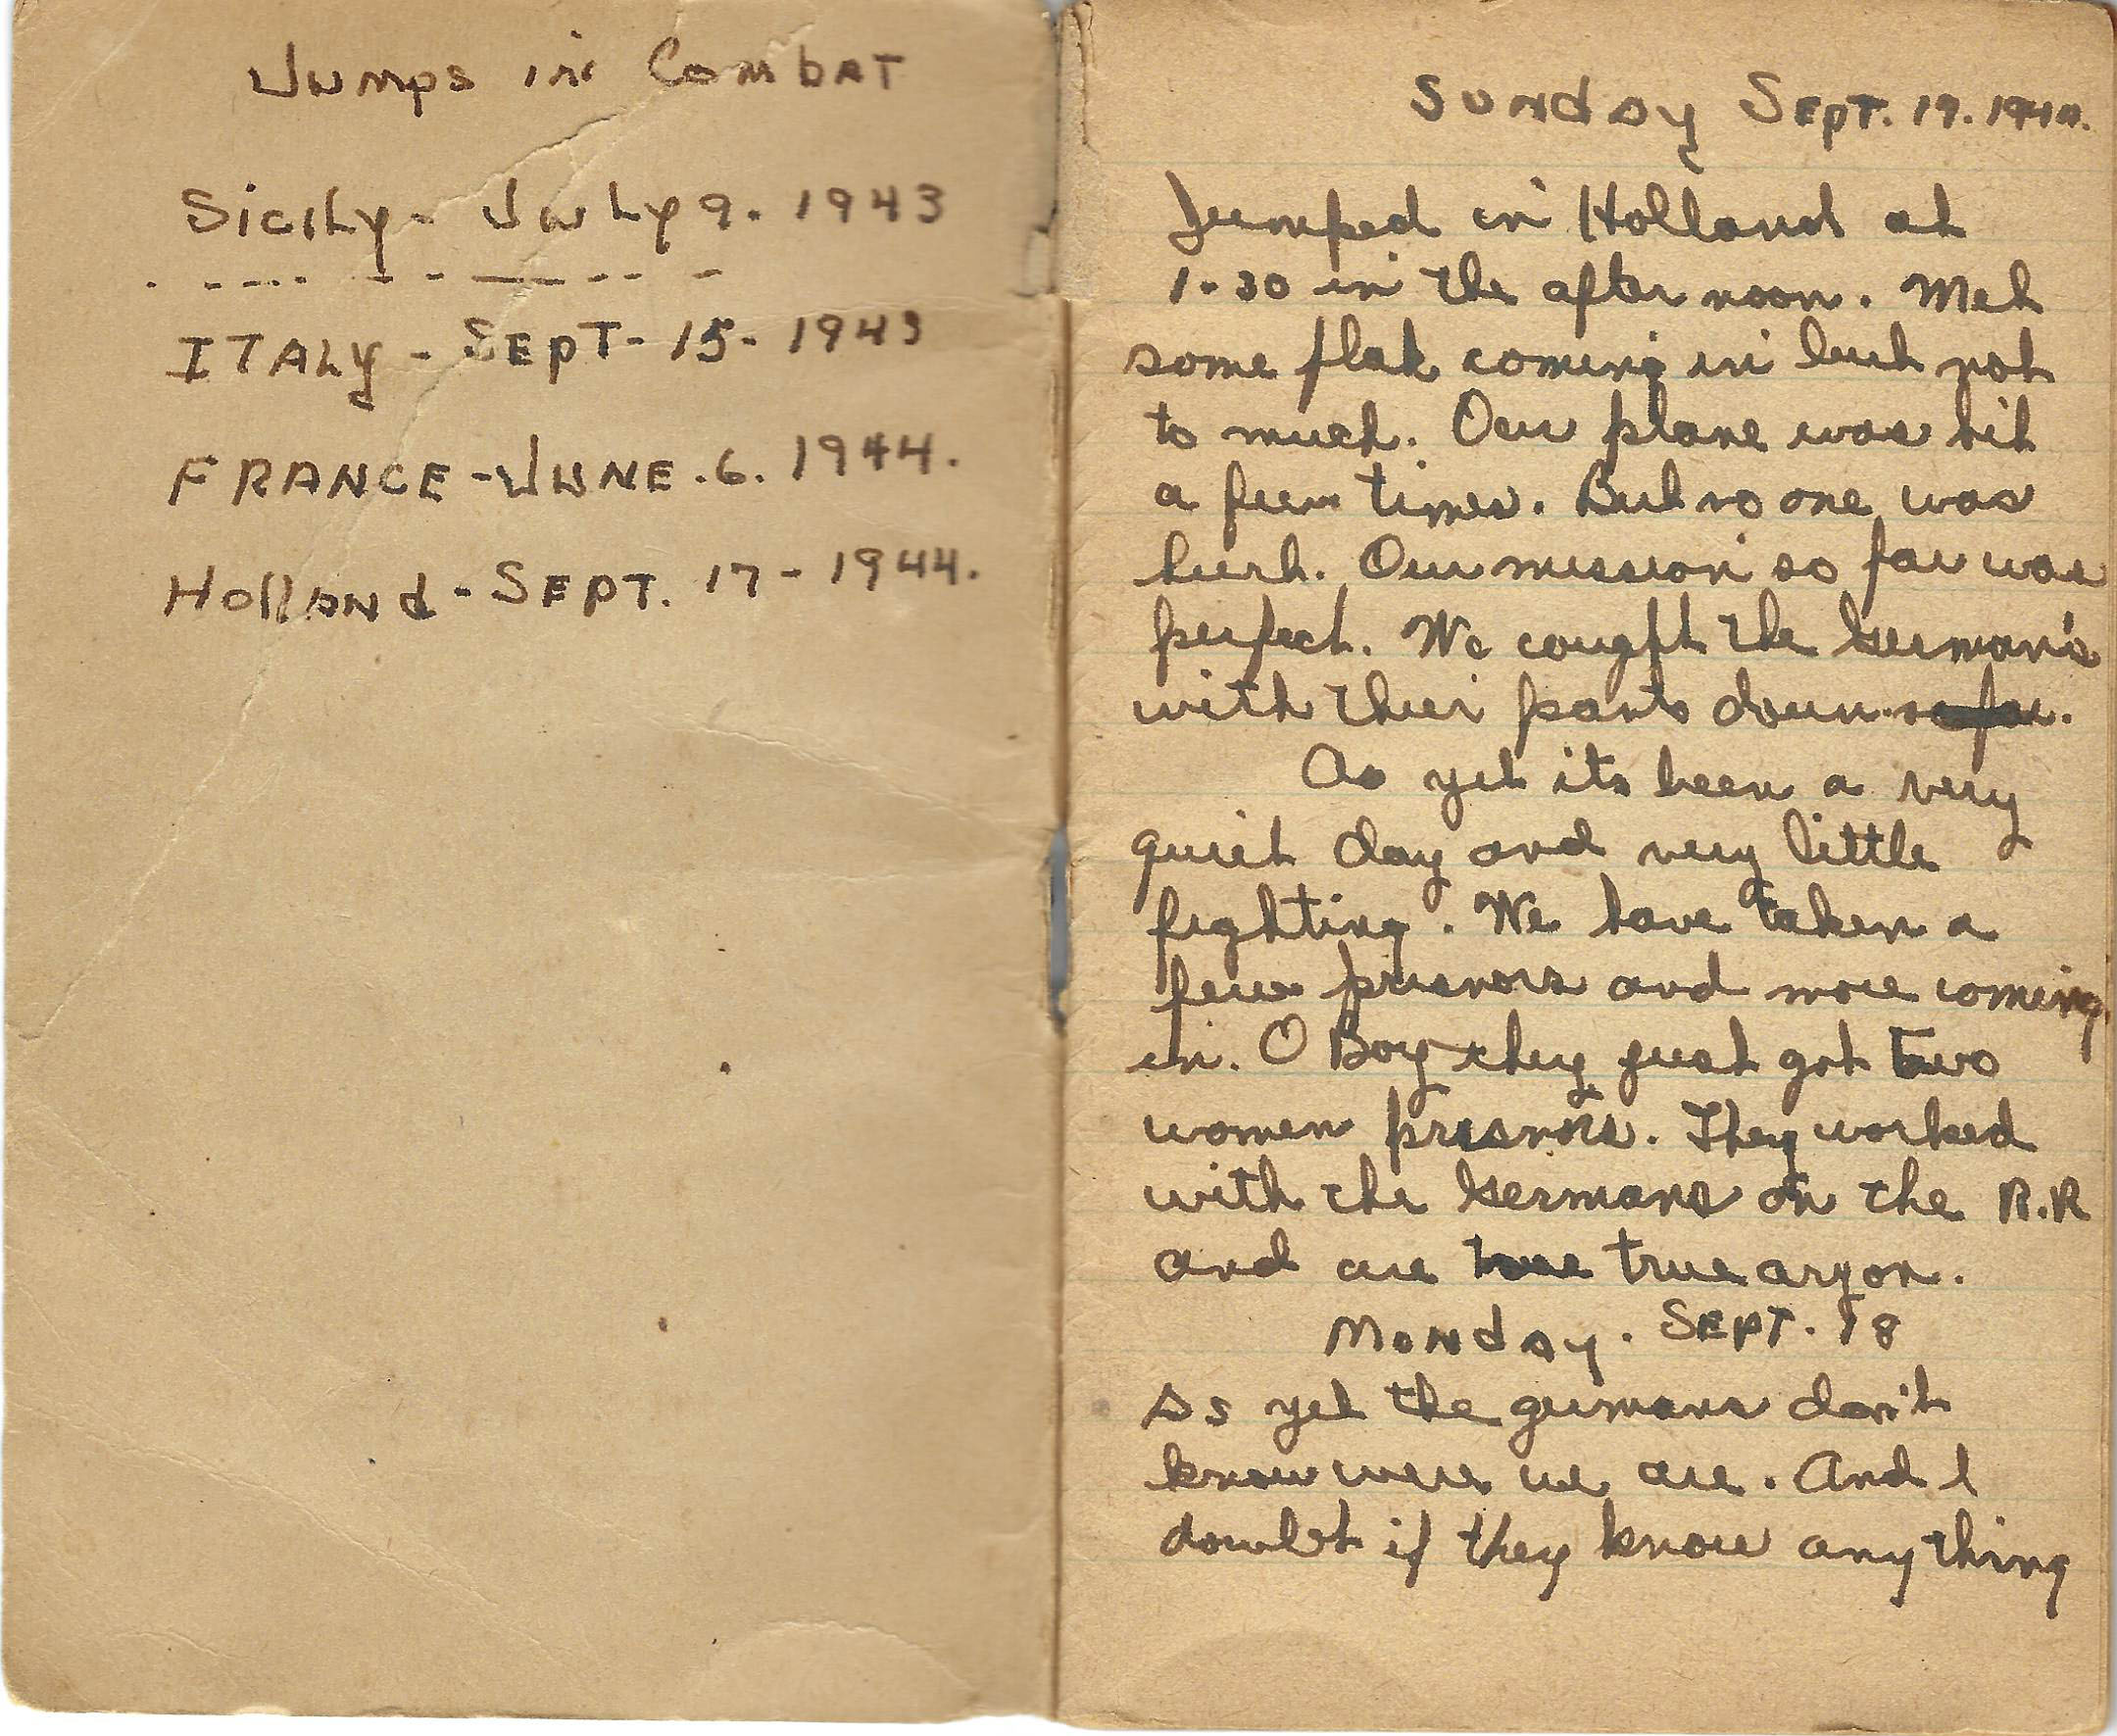 Jumps in Combat
Sicily - July 9. 1943
ITALY - SEPT - 15 - 1943
FRANCE - JUNE. 6. 1944.
Holland - SEPT. 17 - 1944.
Sunday Sept. 17. 1944.
Jumped in Holland at
1-30 in the after noon. Met
some flak coming in but not
to much. Our plane was hit
a few times. But no one was
hurt. Our mission so far was
perfect. We cought the German's
with thier pants down so far.
As yet its been a very
quiet day and very little
fighting. We have taken a
few prisnors and more coming
in. O Boy they just got two
women prisnors. They worked
with the Germans on the R.R
and are true aryon.
Monday. SEPT. 18
As yet the germans don't
know were we are. And I
doubt if they know any thing